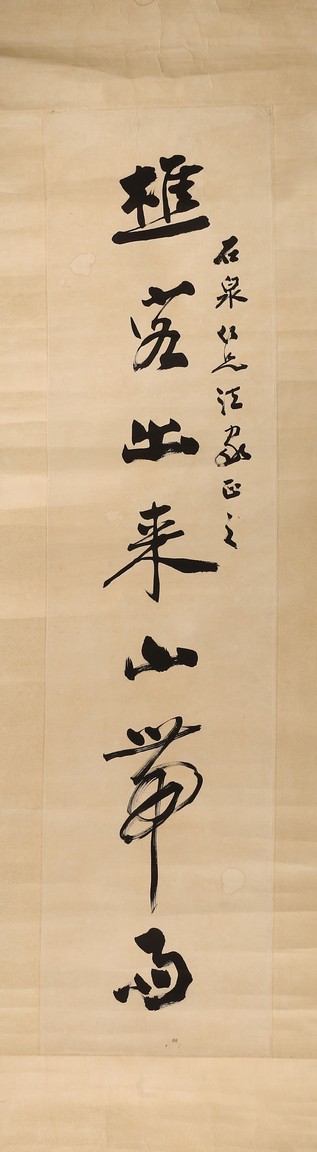 石泉仁兄法家正之
樵客出来山带雨